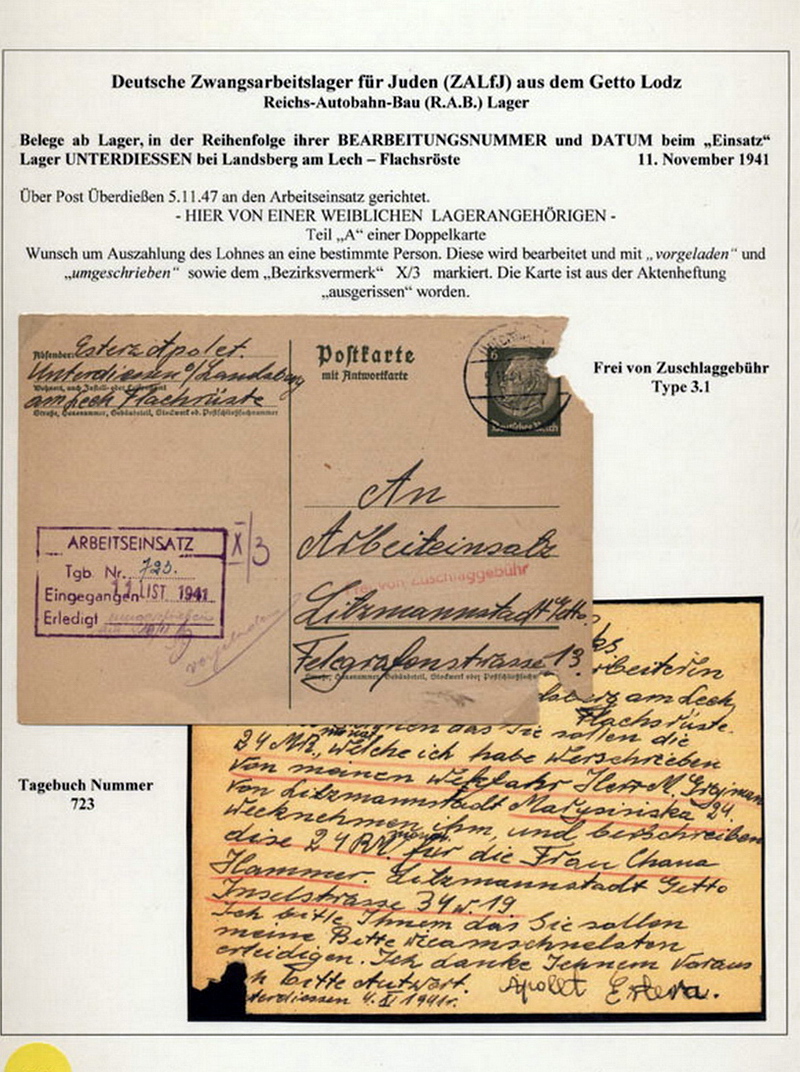 Deutsche Zwangsarbeitslager für Juden (ZALfJ) aus dem Getto Lodz
Reichs-Autobahn-Bau (R.A.B.) Lager
Belege ab Lager, in der Reihenfolge ihrer BEARBEITUNGSNUMMER und DATUM beim „Einsatz“
Lager UNTERDIESSEN bei Landsberg am Lech – Flachsröste 11. November 1941
Über Post Überdießen 5.11.47 an den Arbeitseinsatz gerichtet.
- HIER VON EINER WEIBLICHEN LAGERANGEHÖRIGEN -
Teil „A“ einer Doppelkarte
Wunsch um Auszahlung des Lohnes an eine bestimmte Person. Diese wird bearbeitet und mit „vorgeladen“ und
„umgeschrieben“ sowie dem „Bezirksvermerk“ X/3 markiert. Die Karte ist aus der Aktenheftung
„ausgerissen“ worden.
Absender: Estera Apolet.
Unterdiessen a/Landsberg
Wohnort, auch Zustell- oder Leitpostamt
am Lech Flachsrüste
Straße, Hausnummer, Gebäudeteil, Stockwerk od. Postschließfachnummer
Postkarte
mit Antwortkarte
6
Deutsches Reich
Frei von Zuschlaggebühr
Type 3.1
An
Arbeiteinsatz
Frei von Zuschlaggebühr
Litzmannstadt Getto
Telegrafenstrasse 13.
Straße, Hausnummer, Gebäudeteil, Stockwerk oder Postschließfach
ARBEITSEINSATZ
Tgb. Nr. 723.
Eingegangen 11 LIST 1941
Erledigt umgeschrieben
X/3
vorgeladen
Tagebuch Nummer
723
arbeiterin
am Lech,
Flachsrüste.
das Sie sollen die
24 MR, welche ich habe werschrieben
von meinen Herr M.
von Litzmannstadt Marysinska 24.
wecknehmen ihm, und berschreiben
dise 24 RM für die Frau Chana
Hammer. Litzmannstadt Getto
Inselstrasse 34 w. 19
Ich bitte Ihnem das Sie sollen
meine Bitte wieamschnelsten
erleidigen. Ich danke Iehnem voraus
bitte Antwort. Apollt Estera.
terdiessen 4. XI 1941r.